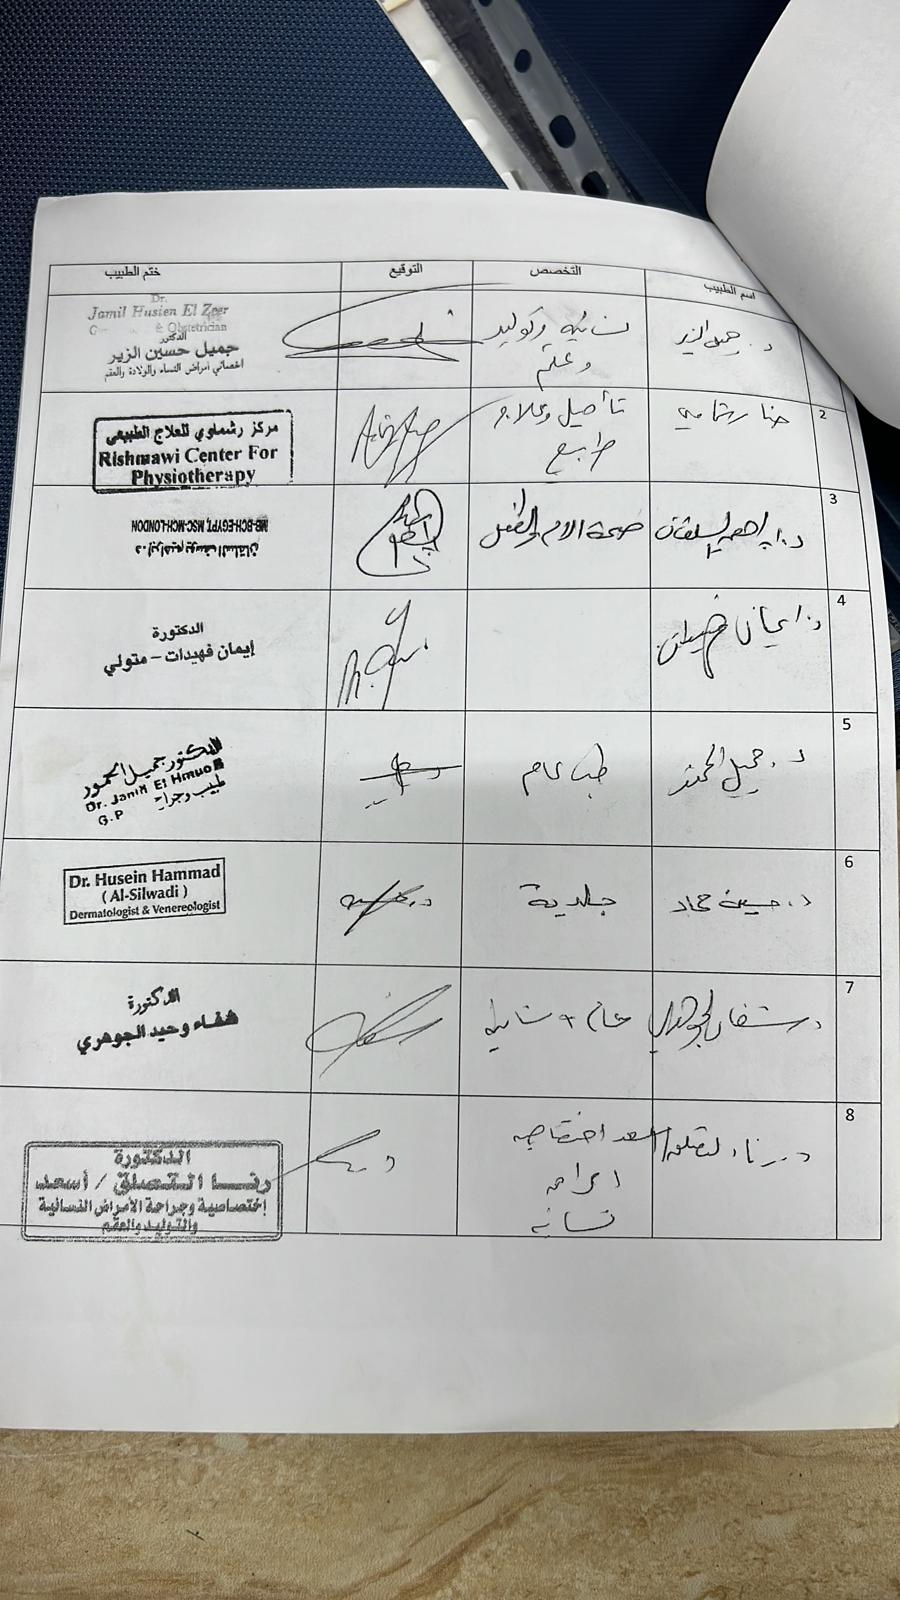 اسم الطبيب التخصص التوقيع ختم الطبيب
د. جميل الزير نسائية وتوليد
وعقم
Dr.
Jamil Husien El Zeer
& Obstetrician
الدكتور
جميل حسين الزير
اخصائي امراض النساء والولادة والعقم
2 حنا رشماوي تأهيل وعلاج
طبيعي
مركز رشماوي للعلاج الطبيعي
Rishmawi Center For
Physiotherapy
3 د. ابراهيم السلقان صحة الام والطفل
د. إبراهيم يوسف السلقان
MB-BCH-EGYPT, MSC-MCH-LONDON
4 د. ايمان فهيدات
الدكتورة
إيمان فهيدات - متولي
5 د. جميل الحمود طب عام
الدكتور جميل الحمود
Dr. Jamil El Hmuo
طبيب وجراح
G.P
6 د. حسين حماد جلدية
Dr. Husein Hammad
( Al-Silwadi )
Dermatologist & Venereologist
7 د. شفاء الجوهري عام + نسائية
الدكتورة
شفاء وحيد الجوهري
8 د. رنا القصلق/اسعد اختصاصية
جراحة
نسائية
الدكتورة
رنا القصلق / أسعد
إختصاصية وجراحة الأمراض النسائية
والتوليد والعقم